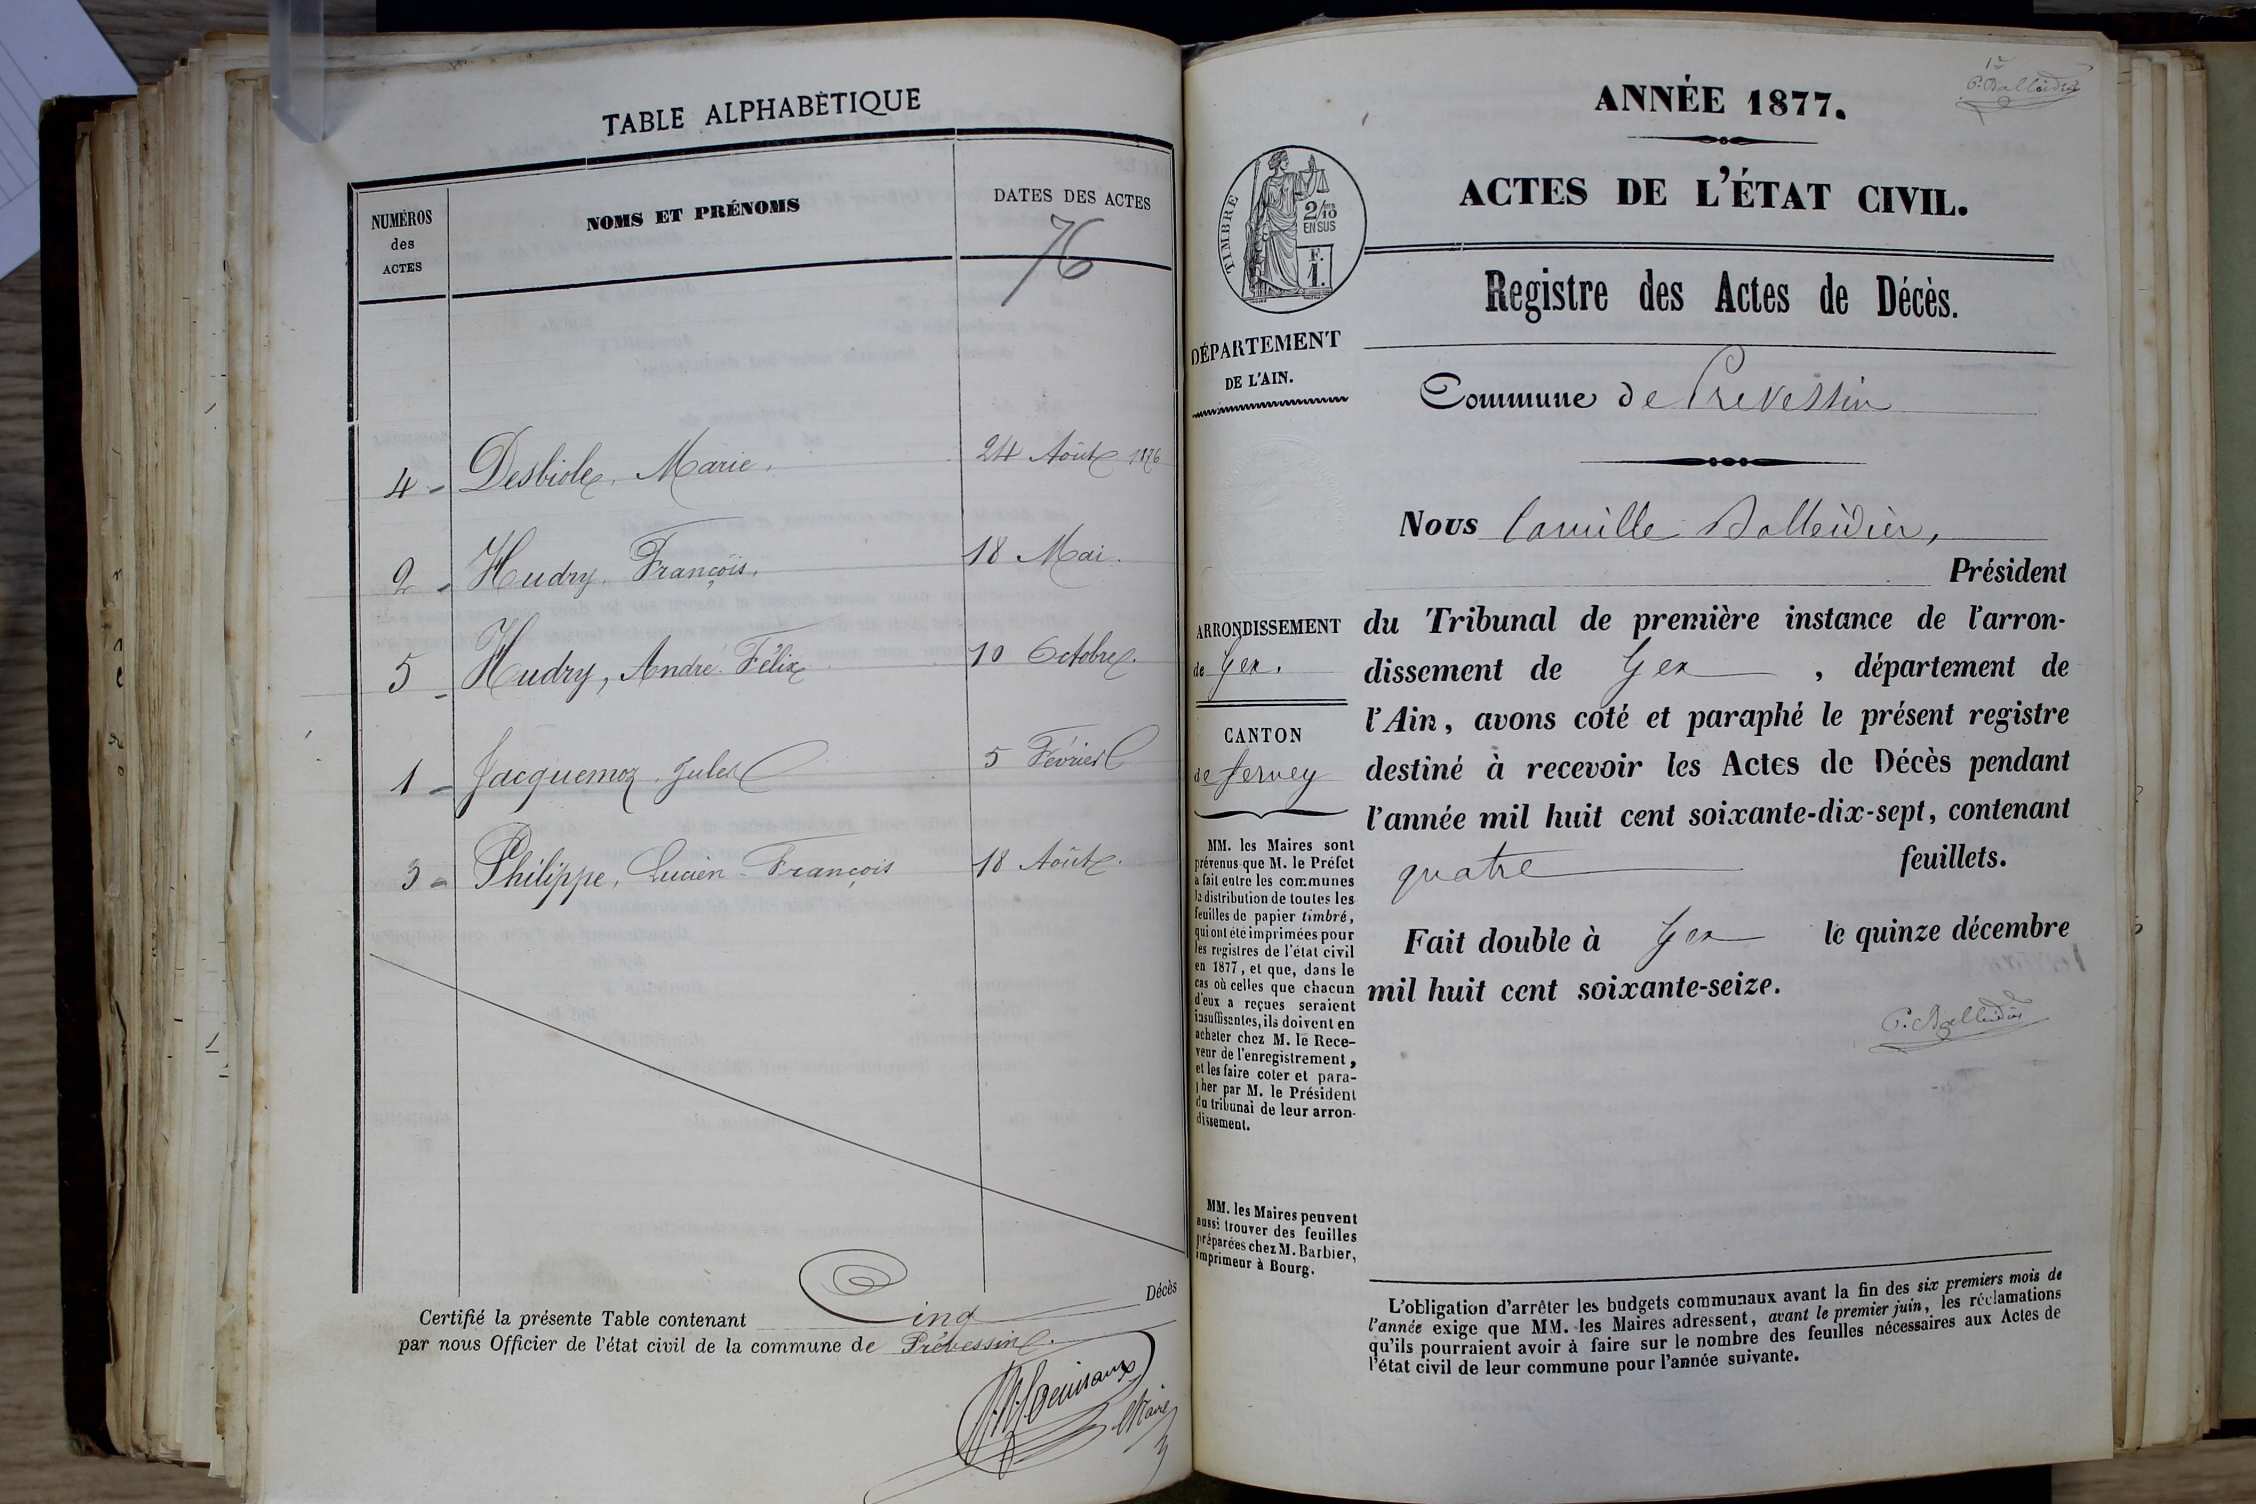 TABLE ALPHABÈTIQUE
NUMÉROS
des
ACTES
NOMS ET PRÉNOMS
DATES DES ACTES
76
4 - Desbiolle, Marie. 24 Août 1876
2 - Hudry, François. 18 Mai.
5 - Hudry, André Félix 10 Octobre.
1 - Jacquemoz Jules 5 Février
3 - Philippe, Lucien François 18 Août.
Certifié la présente Table contenant Cinq Décès
par nous Officier de l'état civil de la commune de Prévessin.
Maire
ANNÉE 1877.
ACTES DE L'ÉTAT CIVIL.
TIMBRE
2/10
EN SUS
F.
1.
Registre des Actes de Décès.
DÉPARTEMENT
DE L'AIN.
Commune de Prevessin
Nous Camille Balleidier,
Président
ARRONDISSEMENT
de Gex.
CANTON
de Ferney
du Tribunal de première instance de l'arron-
dissement de Gex, département de
l'Ain, avons coté et paraphé le présent registre
destiné à recevoir les Actes de Décès pendant
l'année mil huit cent soixante-dix-sept, contenant
quatre feuillets.
Fait double à Gex le quinze décembre
mil huit cent soixante-seize.
C. Balleidier
MM. les Maires sont
prévenus que M. le Préfet
a fait entre les communes
la distribution de toutes les
feuilles de papier timbré,
qui ont été imprimées pour
les registres de l'état civil
en 1877, et que, dans le
cas où celles que chacun
d'eux a reçues seraient
insuffisantes, ils doivent en
acheter chez M. le Rece-
veur de l'enregistrement,
et les faire coter et para-
pher par M. le Président
du tribunal de leur arron-
dissement.
MM. les Maires peuvent
aussi trouver des feuilles
préparées chez M. Barbier,
imprimeur à Bourg.
L'obligation d'arrêter les budgets communaux avant la fin des six premiers mois de
l'année exige que MM. les Maires adressent, avant le premier juin, les réclamations
qu'ils pourraient avoir à faire sur le nombre des feuilles nécessaires aux Actes de
l'état civil de leur commune pour l'année suivante.